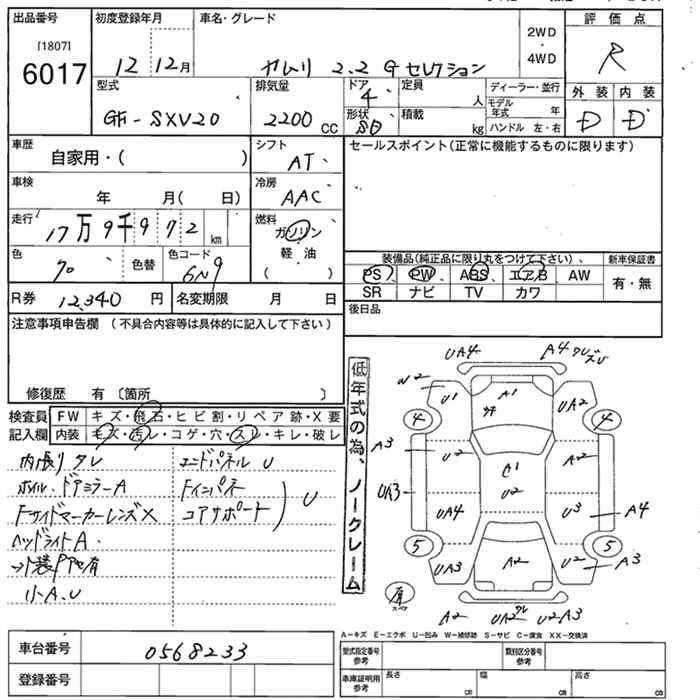 出品番号
[1807]
6017
初度登録年月
12 12月
車名・グレード
カムリ 2.2 G セレクション
2WD
・
4WD
評価点
R
型式
GF-SXV20
排気量
2200 CC
ドア
4
形状
SD
定員
人
積載
kg
ディーラー・並行
モデル年式 年
ハンドル 左・右
外装 内装
D D
車歴
自家用・( )
シフト
AT
セールスポイント(正常に機能するものに限ります)
車検
年 月( 日)
冷房
AAC
走行
17万9千972 km
燃料
ガソリン
軽油
( )
色
色替
色コード
6N9
装備品(純正品に限り丸をつけて下さい)、
新車保証書
PS PW ABS エアB AW
有・無
SR ナビ TV カワ
R券 12,340 円
名変期限 月 日
後日品
注意事項申告欄 (不具合内容等は具体的に記入して下さい)
修復歴 有〔箇所 〕
検査員
記入欄
FW キズ・飛石・ヒビ割・リペア跡・X要
内装 キズ・汚レ・コゲ・穴・スレ・キレ・破レ
内張り タレ
ホイル・ドアミラーA
FサイドマーカーレンズX
ヘッドライトA
小A.U
エンドパネル U
Fインパネ
コアサポート
U
低年式の為、ノークレーム
UA4 A4
W2 U1 A1 UA2
4 4
A3 U2 A2
C1
U2
UA3 UA4 U3 A4
5 5
UA3 A2 U2 A3
有
スペア
A2 UA2 U2 A3
A-キズ E-エクボ U-凹み W-補修跡 S-サビ C-腐食 XX-交換済
車台番号
0568233
登録番号
型式指定番号
参考
類別区分番号
参考
車庫証明用
参考
長さ cm
幅 cm
高さ cm